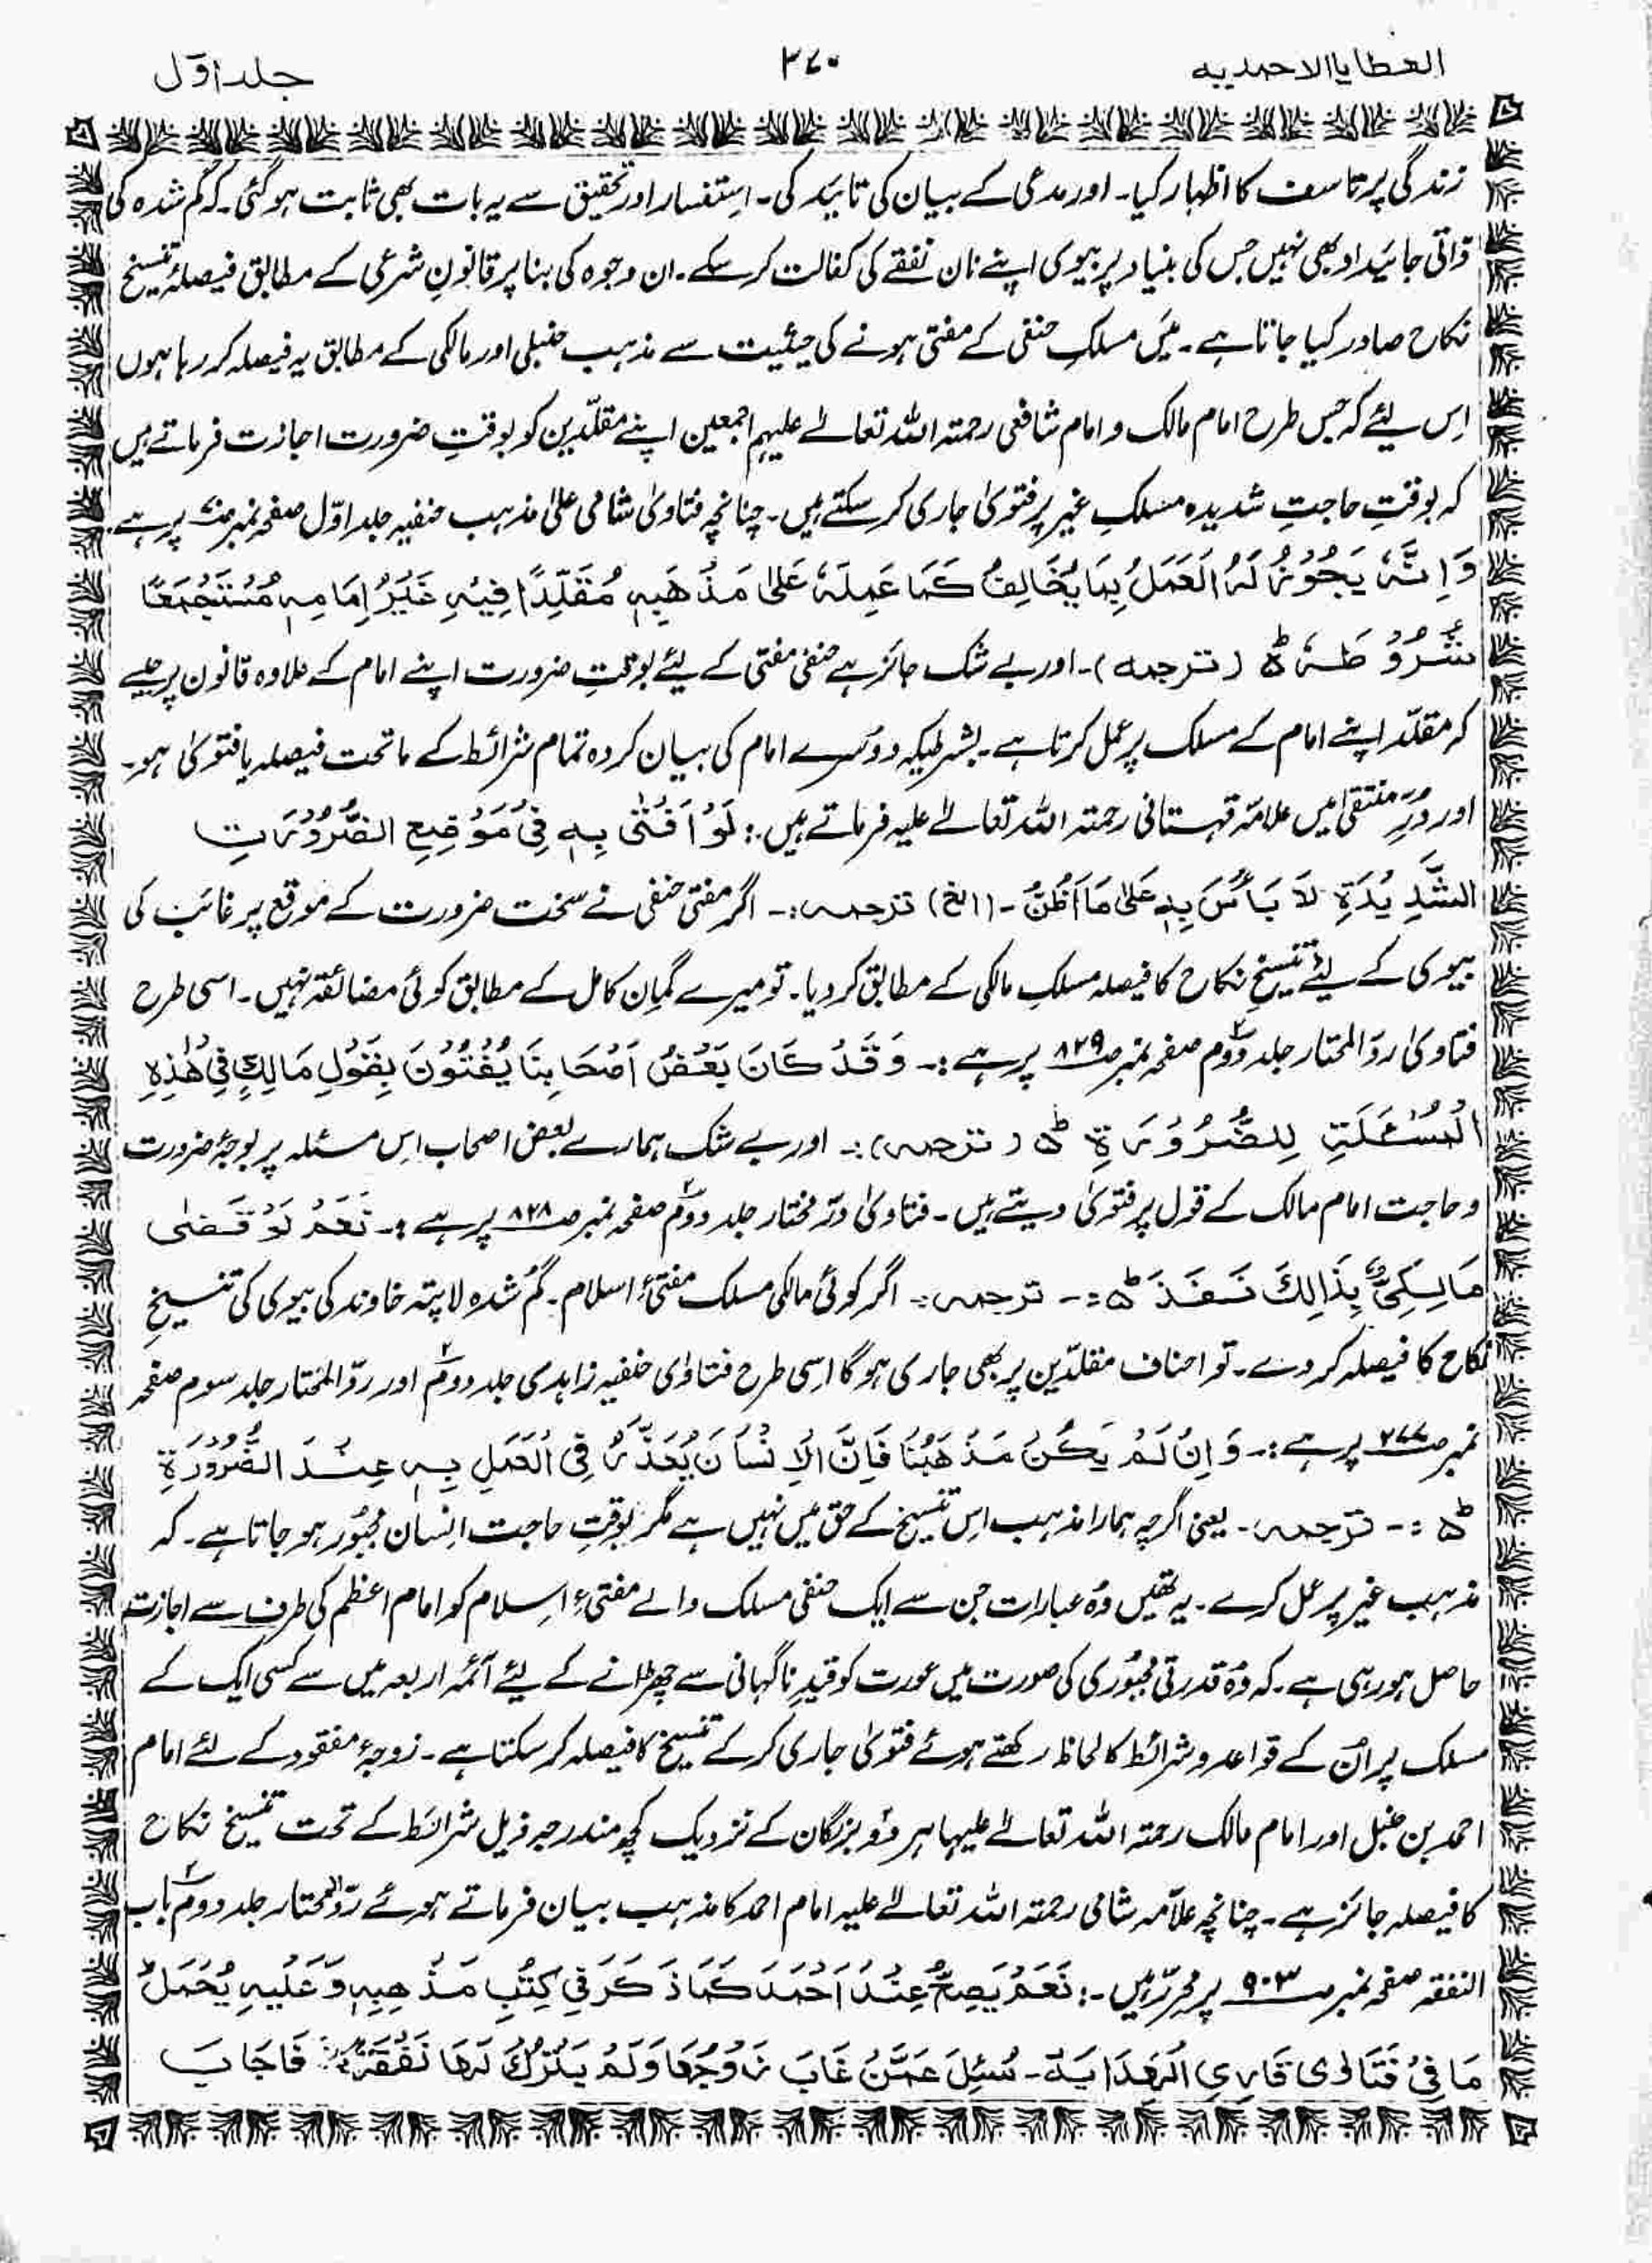 العطایا الاحمدیه
۳۷۰
جلد اوّل
زندگی پر تاسف کا اظہار کیا۔ اور مدعی کے بیان کی تائید کی۔ اِستفسار اور تحقیق سے یہ بات بھی ثابت ہو گئی۔ کہ گم شدہ کی
ذاتی جائیداد بھی نہیں جس کی بنیاد پر بیوی اپنے نان نفقے کی کفالت کر سکے۔ ان وجوہ کی بنا پر قانونِ شرعی کے مطابق فیصلۂ تنسیخ
نکاح صادر کیا جاتا ہے۔ میَں مسلکِ حنفی کے مفتی ہونے کی حیثیت سے مذہب حنبلی اور مالکی کے مطابق یہ فیصلہ کر رہا ہوں
اِس لیئے کہ جس طرح امام مالک و امام شافعی رحمتہ اللہ تعالےٰ علیہم اجمعین اپنے مقلّدین کو بوقتِ ضرورت اجازت فرماتے ہیں
کہ بوقتِ حاجتِ شدیدہ مسلکِ غیر پر فتویٰ جاری کر سکتے ہیں۔ چنانچہ فتاویٰ شامی علیٰ مذہب حنفیہ جلد اوّل صفحہ نمبر پر ہے۔
وَاِنَّہٗ یَجُوْزُ لَہُ الْعَمَلُ بِمَا یُخَالِفُ کَمَا عَمِلَہٗ عَلیٰ مَذْھَبِہٖ مُقَلِّدًا فِیْہِ غَیْرُ اِمَامِہٖ مُسْتَجْمَعًا
شُرُوْطَہٗ ۵ (ترجمہ)۔ اور بے شک جائز ہے حنفی مفتی کے لیئے بوقتِ ضرورت اپنے امام کے علاوہ قانون پر جیسے
کہ مقلّد اپنے امام کے مسلک پر عمل کرتا ہے۔ بشرطیکہ دوُسرے امام کی بیان کردہ تمام شرائط کے ماتحت فیصلہ یا فتویٰ ہو۔
اور دُرِّ منتقیٰ میں علامّہ قہستانی رحمتہ اللہ تعالےٰ علیہ فرماتے ہیں :۔ لَوْ اَفْتٰی بِہٖ فِیْ مَوْقِعِ الضَّرُوْرَتِ
الشَّدِیْدَۃِ لاَ بَأْسَ بِہٖ عَلیٰ مَا اَظُنُّ ۔ (الخ) ترجمہ:۔ اگر مفتی حنفی نے سخت ضرورت کے موقع پر غائب کی
بیوی کے لیئے تنسیخِ نکاح کا فیصلہ مسلکِ مالکی کے مطابق کر دیا۔ تو میرے گمانِ کامل کے مطابق کوئی مضائقہ نہیں۔ اسی طرح
فتاویٰ ردّ المحتار جلد دوّم صفحہ نمبر ۸۲۹ پر ہے :۔ وَقَدْ کَانَ بَعْضُ اَصْحَابِنَا یُفْتُوْنَ بِقَوْلِ مَالِکٍ فِیْ ھٰذِہِ
الْمَسْئَلَۃِ لِلضَّرُوْرَۃِ ۵ (ترجمہ):۔ اور بے شک ہمارے بعض اصحاب اِس مسئلہ پر بوجۂ ضرورت
و حاجت امام مالک کے قول پر فتویٰ دیتے ہیں۔ فتاویٰ درّ مختار جلد دوّم صفحہ نمبر ۸۲۸ پر ہے :۔ نَعَمْ لَوْ قَضٰی
مَالِکِیٌّ بِذَالِکَ نَفَذَ ۵ :۔ ترجمہ :۔ اگر کوئی مالکی مسلک مفتیِٔ اسلام۔ گُم شدہ لاپتہ خاوند کی بیوی کی تنسیخِ
نکاح کا فیصلہ کر دے۔ تو احناف مقلّدین پر بھی جاری ہو گا اسی طرح فتاوٰی حنفیہ زاہدی جلد دوّم اور ردّ المختار جلد سوم صفحہ
نمبر ۲۷۷ پر ہے :۔ وَ اِنْ لَمْ یَکُنْ مَذْھَبُنَا فَاِنَّ الْاِنْسَانَ یُعَذَّرُ فِی الْعَمَلِ بِہٖ عِنْدَ الضَّرُوْرَۃِ
۵ :۔ ترجمہ ۔ یعنی اگرچہ ہمارا مذہب اِس تنسیخ کے حق میں نہیں ہے مگر بوقتِ حاجت اِنسان مجبوُر ہو جاتا ہے۔ کہ
مذہب غیر پر عمل کرے۔ یہ تھیں وُہ عبارات جن سے ایک حنفی مسلک والے مفتیِٔ اسلام کو امام اعظم کی طرف سے اجازت
حاصل ہو رہی ہے۔ کہ وُہ قدرتی مجبوُری کی صورت میں عورت کو قیدِ ناگہانی سے چھڑانے کے لیئے آئمہ اربعہ میں سے کسی ایک کے
مسلک پر اُن کے قواعد و شرائط کا لحاظ رکھتے ہوئے فتویٰ جاری کر کے تنسیخ کا فیصلہ کر سکتا ہے۔ زوجۂ مفقود کے لئے امام
احمد بن حنبل اور امام مالک رحمتہ اللہ تعالےٰ علیہما ہر دوُ بزرگان کے نزدیک کچھ مندرجہ ذیل شرائط کے تحت تنسیخ نکاح
کا فیصلہ جائز ہے۔ چنانچہ علاّمہ شامی رحمتہ اللہ تعالےٰ علیہ امام احمد کا مذہب بیان فرماتے ہوئے ردّ المحتار جلد دوّم باب
النفقہ صفحہ نمبر ۹۰۳ پر محرّر ہیں :۔ نَعَمْ یَصِحُّ عِنْدَ اَحْمَدَ کَمَا ذَکَرَ فِیْ کِتُبِ مَذْھِبِہٖ وَعَلَیْہِ یُحْمَلُ
مَا فِیْ فَتَاوٰی قَارِیِ الْھِدَایَۃ ۔ سُئِلَ عَمَّنْ غَابَ زَوْجُھَا وَلَمْ یَتْرُکْ لَھَا نَفْقَۃً فَاَجَابَ